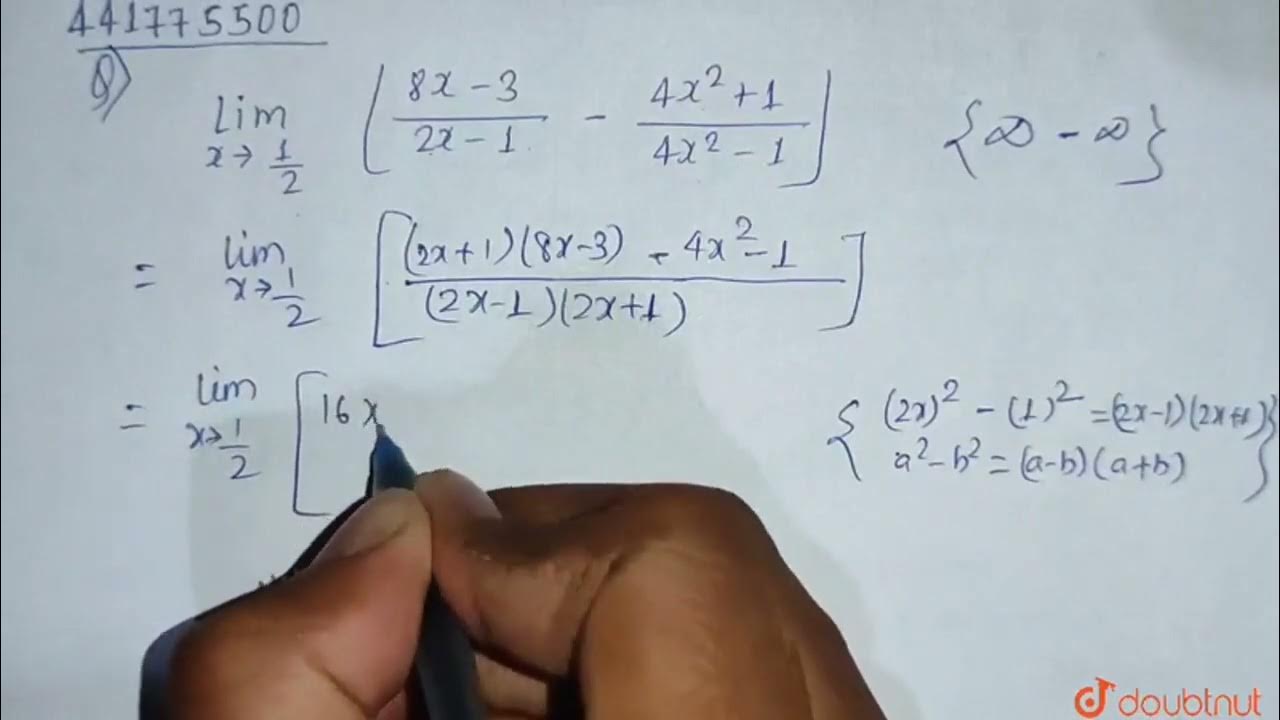 441775500
Q)
lim x→1/2 [ (8x-3)/(2x-1) - (4x²+1)/(4x²-1) ] {∞ - ∞}
= lim x→1/2 [ ((2x+1)(8x-3) - 4x²-1)/((2x-1)(2x+1)) ]
= lim x→1/2 [ 16x
{ (2x)² - (1)² = (2x-1)(2x+1)
a² - b² = (a-b)(a+b) }
doubtnut